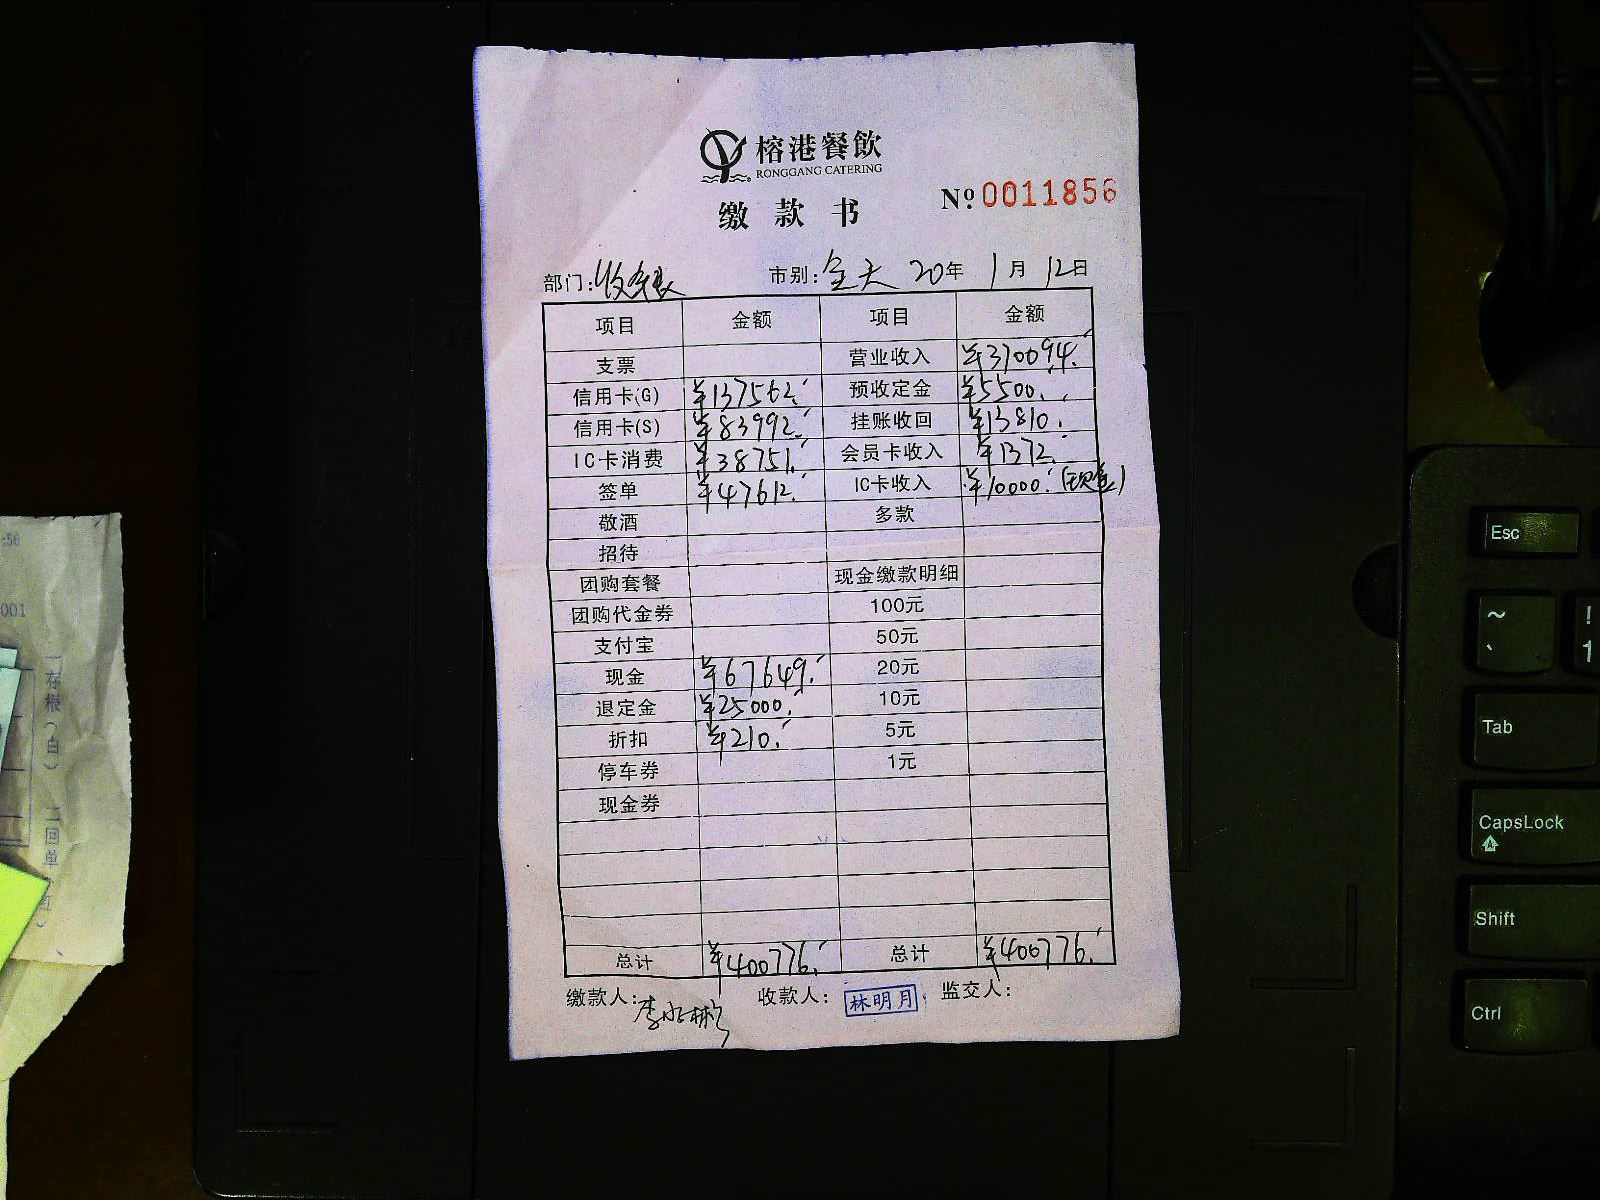 榕港餐飲
RONGGANG CATERING
缴款书
Nº 0011856
部门: 市别:全天 20年 1月 12日
项目 金额 项目 金额
支票 营业收入 ¥370094.
信用卡(G) ¥137562. 预收定金 ¥5500.
信用卡(S) ¥83992. 挂账收回 ¥13810.
IC卡消费 ¥38751. 会员卡收入 ¥1372.
签单 ¥47612. IC卡收入 ¥10000.(现金)
敬酒 多款
招待
团购套餐 现金缴款明细
团购代金券 100元
支付宝 50元
现金 ¥67649. 20元
退定金 ¥25000. 10元
折扣 ¥210. 5元
停车券 1元
现金券
总计 ¥400776. 总计 ¥400776.
缴款人:李水彬 收款人:林明月 监交人:
:56
001
一存根(白) 二回单
Esc
~
`
!
1
Tab
CapsLock
Shift
Ctrl